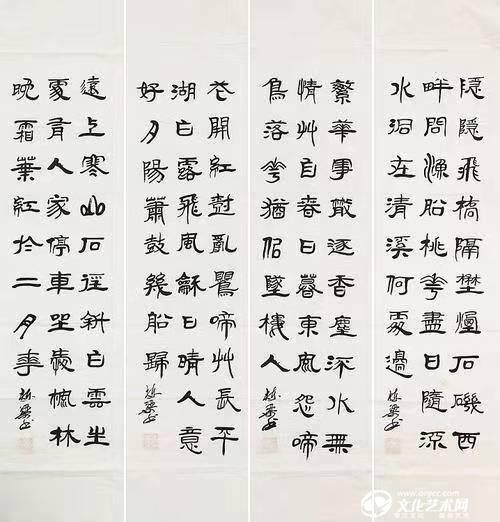 隱隱飛橋隔埜煙石磯西
畔問漁船桃華盡日隨流
水洞在清溪何處邊
繁華事散逐香塵流水無
情艸自春日暮東風怨啼
鳥落華猶佀墜樓人
花開紅樹亂鶯啼艸長平
湖白鷺飛風龢日晴人意
好夕陽簫鼓幾船歸
遠上寒山石徑斜白雲生
處有人家停車坐愛楓林
晚霜葉紅於二月華
文化艺术网